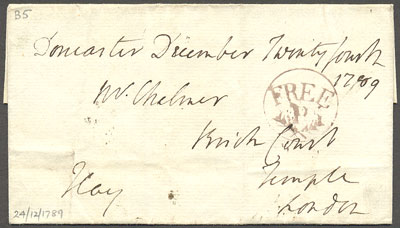 B5
Doncaster December Twenty fourth
1789
Mr. Chalmer
FREE
Brick Court
Hay
Temple
London
24/12/1789